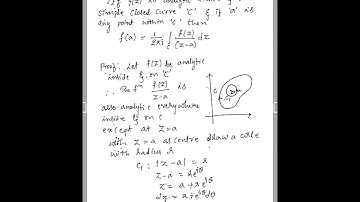 If f(z) is analytic
simple closed curve 'c' & if 'a' is
any point within 'c' then
f(a) = 1/2πi ∫c f(z)/(z-a) dz
Proof: Let f(z) be analytic
inside & on 'c'
∴ The fn f(z)/z-a is
also analytic everywhere
inside & on c
except at z=a
with z=a as centre draw a circle
with radius r
c₁ : |z-a| = r
z-a = re^iθ
z = a + re^iθ
dz = r i e^iθ dθ